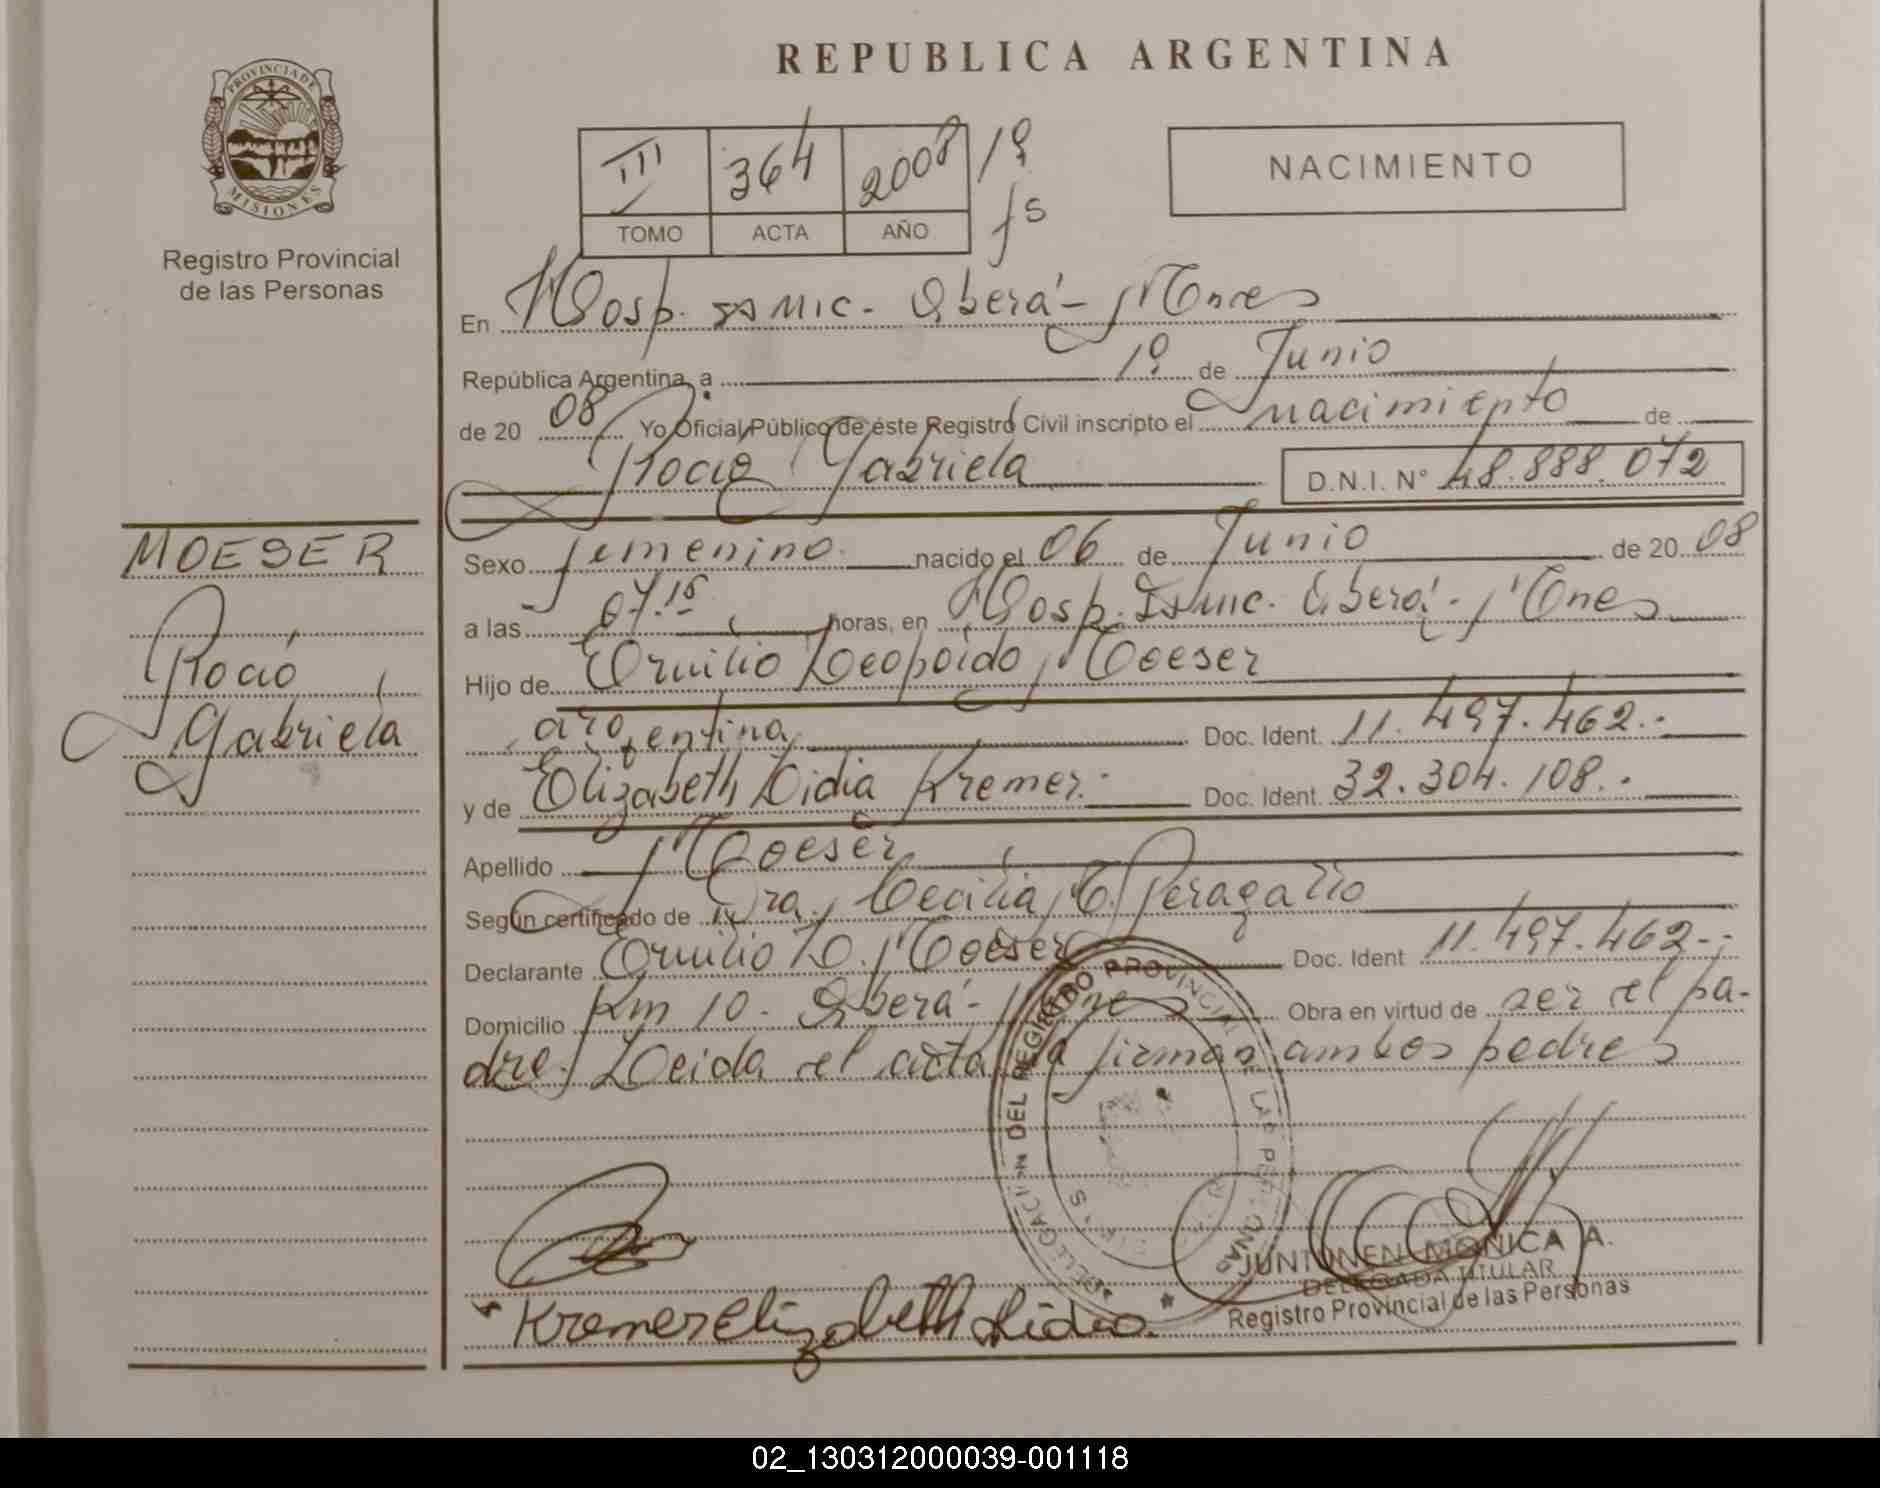 REPUBLICA ARGENTINA
PROVINCIA DE
MISIONES
Registro Provincial
de las Personas
III 364 2008 1º
TOMO ACTA AÑO fs
NACIMIENTO
En Hosp. Samic. Oberá - Mnes
República Argentina, a 1º de Junio
de 20 08 Yo Oficial Público de éste Registro Civil inscripto el nacimiento de
Rocio Gabriela D.N.I. N° 48.888.072
MOESER
Rocio
Gabriela
Sexo femenino nacido el 06 de Junio de 20 08
a las 07.15 horas, en Hosp. Samic. Oberá - Mnes
Hijo de Emilio Leopoldo Moeser
argentina Doc. Ident. 11.497.462.-
y de Elizabeth Lidia Kremer.- Doc. Ident. 32.304.108.-
Apellido Moeser
Según certificado de Dra. Cecilia Peragallo
Declarante Emilio L. Moeser Doc. Ident 11.497.462.-
Domicilio Km 10 - Oberá - Mnes Obra en virtud de ser el pa-
dre. Leida el acta la firman ambos padres
DELEGACION DEL REGISTRO PROVINCIAL DE LAS PERSONAS
Kremer Elizabeth Lidia.
JUNTUNEN MONICA A.
DELEGADA TITULAR
Registro Provincial de las Personas
02_130312000039-001118